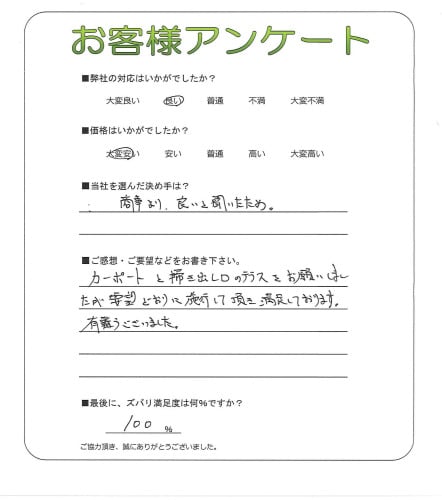 お客様アンケート
■弊社の対応はいかがでしたか？
大変良い 良い 普通 不満 大変不満
■価格はいかがでしたか？
大変安い 安い 普通 高い 大変高い
■当社を選んだ決め手は？
商事より、良いと聞いたため。
■ご感想・ご要望などをお書き下さい。
カーポートと掃き出し口のテラスをお願いしまし
たが要望どおりに施行して頂き満足しております。
有難うございました。
■最後に、ズバリ満足度は何％ですか？
100 ％
ご協力頂き、誠にありがとうございました。